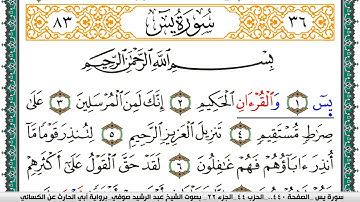 ٨٣ سُورَةُ يسٓ ٣٦
بِسْمِ اللَّهِ الرَّحْمَٰنِ الرَّحِيمِ
يسٓ ١ وَالْقُرْءَانِ الْحَكِيمِ ٢ إِنَّكَ لَمِنَ الْمُرْسَلِينَ ٣ عَلَىٰ
صِرَٰطٍ مُّسْتَقِيمٍ ٤ تَنزِيلَ الْعَزِيزِ الرَّحِيمِ ٥ لِتُنذِرَ قَوْمًا مَّا
أُنذِرَ ءَابَآؤُهُمْ فَهُمْ غَٰفِلُونَ ٦ لَقَدْ حَقَّ الْقَوْلُ عَلَىٰٓ أَكْثَرِهِمْ
سورة يس . الصفحة ٤٤٠ . الحزب ٤٤ . الجزء ٢٢ . بصوت الشيخ عبد الرشيد صوفي . برواية أبي الحارث عن الكسائي